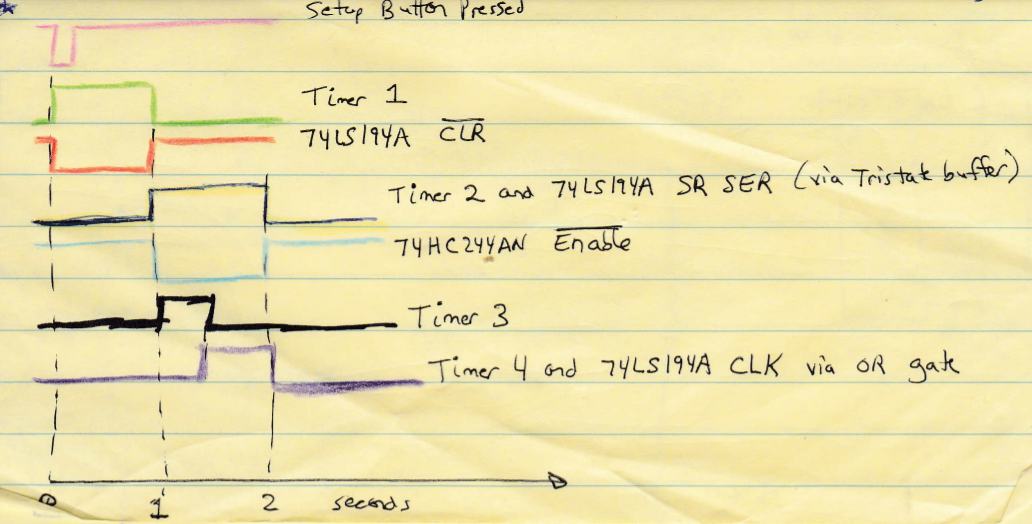 Setup Button Pressed
Timer 1
74LS194A CLR
Timer 2 and 74LS194A SR SER (via Tristate buffer)
74HC244AN Enable
Timer 3
Timer 4 and 74LS194A CLK via OR gate
0 1 2 seconds